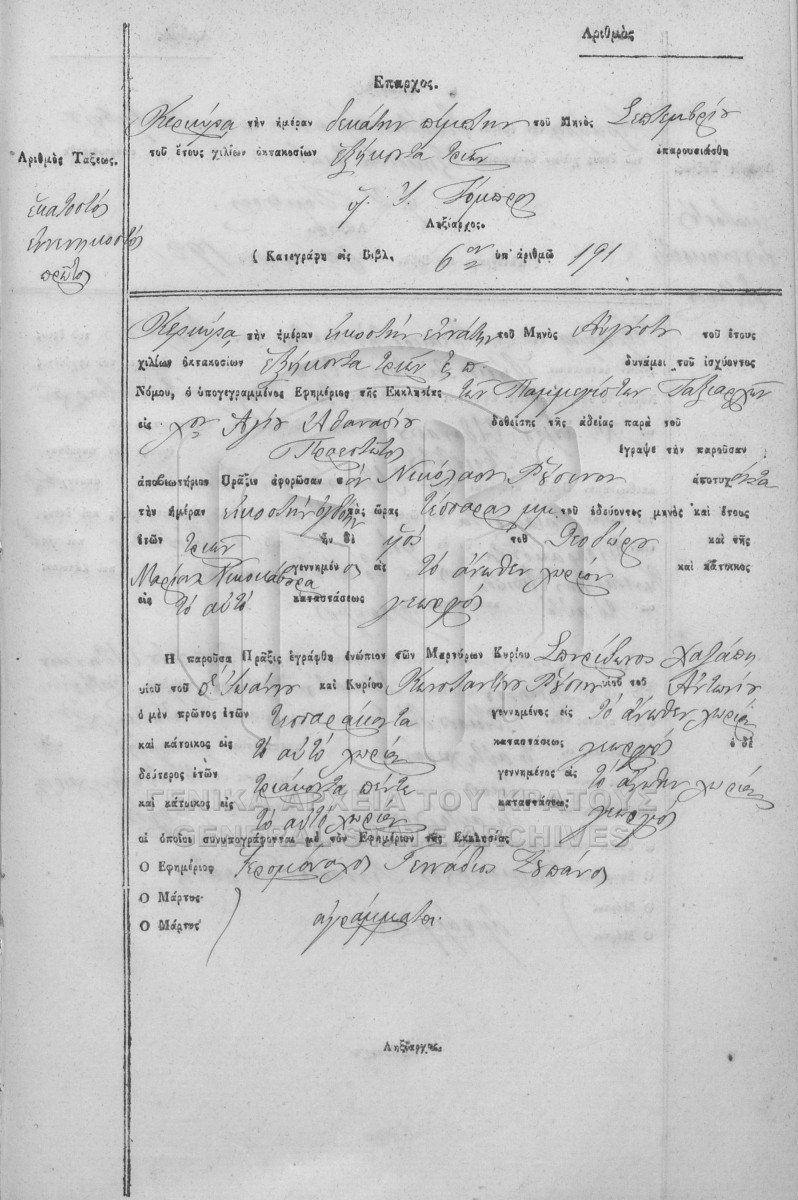 Αριθμὸς
Επαρχος.
Κερκύρα τὴν ἡμέραν δεκάτην πέμπτην τοῦ Μηνὸς Σεπτεμβρίου
τοῦ ἔτους χιλίων ὀκτακοσίων ἑξήκοντα τριῶν ἐπαρουσιάσθη
Αριθμὸς Τάξεως.
ἑκατοστὸς
ἐννενηκοστὸς
πρῶτος
Ληξίαρχος.
( Κατεγράφη εἰς Βιβλ. 6 ον ὑπ' ἀριθμῷ 191
Κερκύρα, τὴν ἡμέραν εἰκοστὴν ἐννάτην τοῦ Μηνὸς Αὐγούστου τοῦ ἔτους
χιλίων ὀκτακοσίων ἑξήκοντα τριῶν ἐ. π. δυνάμει τοῦ ἰσχύοντος
Νόμου, ὁ ὑπογεγραμμένος Εφημέριος τῆς Εκκλησίας τῶν Παμμεγίστων Ταξιαρχῶν
εἰς χον Αγίου Αθανασίου δοθείσης τῆς ἀδείας παρὰ τοῦ
Πρωτ έγραψε τὴν παροῦσαν
ἀποβιωτήριον Πρᾶξιν ἀφορῶσαν τὸν Νικόλαον ἀποτυχόντα
τὴν ἡμέραν εἰκοστὴν ὀγδόην τὰς ὥρας τέσσαρας μ.μ. τοῦ ὁδεύοντος μηνὸς καὶ ἔτους
ἐτῶν τριῶν ἦν δὲ υἱὸς τοῦ Θεοδώρου καὶ τῆς
Μαρίας γεννημένος εἰς τὸ ἄνωθεν χωρίον καὶ κάτοικος
εἰς τὸ αὐτὸ καταστάσεως γεωργὸς
Η παροῦσα Πρᾶξις ἐγράφθη ἐνώπιον τῶν Μαρτύρων Κυρίου Σπυρίδωνος
υἱοῦ τοῦ Ἰωάννου καὶ Κυρίου Κωνσταντίνου υἱοῦ τοῦ Αντωνίου
ὁ μὲν πρῶτος ἐτῶν τεσσαράκοντα γεννημένος εἰς τὸ ἄνωθεν χωρίον
καὶ κάτοικος εἰς τὸ αὐτὸ χωρίον καταστάσεως γεωργὸς ὁ δὲ
δεύτερος ἐτῶν τριάκοντα πέντε γεννημένος εἰς τὸ ἄνωθεν χωρίον
καὶ κάτοικος εἰς τὸ αὐτὸ χωρίον καταστάσεως γεωργὸς
οἱ ὁποῖοι συνυπογράφονται μὲ τὸν Εφημέριον τῆς Εκκλησίας
Ο Εφημέριος Ἱερομόναχος Γεννάδιος
Ο Μάρτυς
Ο Μάρτυς ἀγράμματοι
Ληξίαρχος.
ΓΕΝΙΚΑ ΑΡΧΕΙΑ ΤΟΥ ΚΡΑΤΟΥΣ
GENERAL STATE ARCHIVES